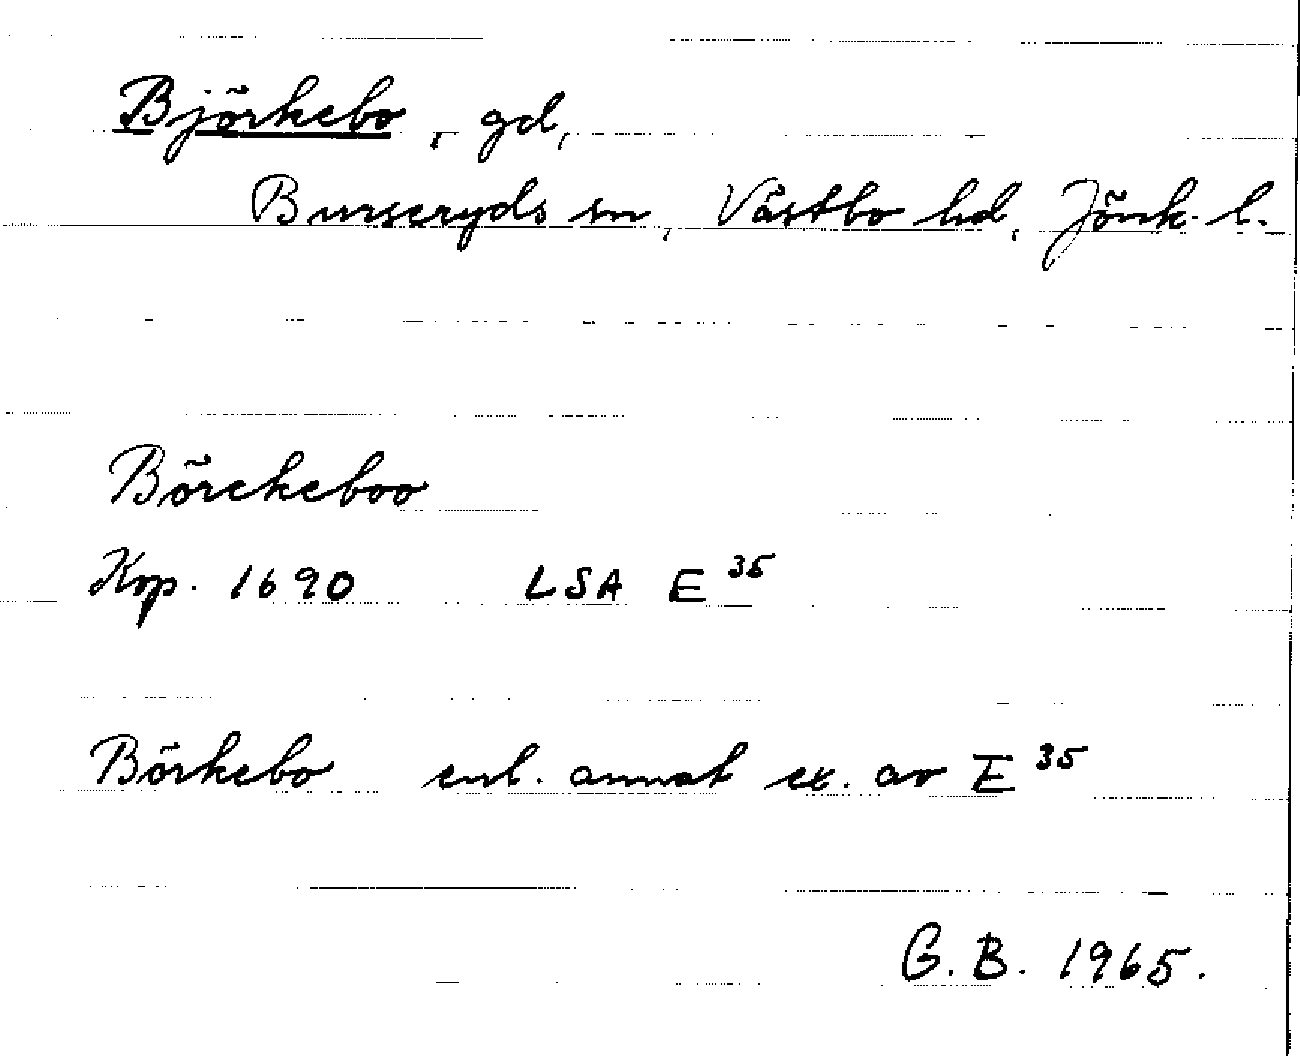 Björkebo, gd,
Burseryds sn, Västbo hd, Jönk. l.
Börekeboo
Kop. 1690 LSA E 35
Börkebo enl. annat ex. av E 35
G. B. 1965.